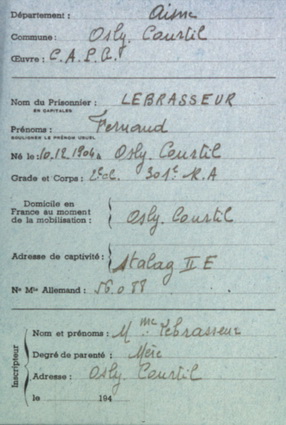 Département : Aisne
Commune : Osly. Courtil
Œuvre : C.A.P.G.
Nom du Prisonnier : LEBRASSEUR
EN CAPITALES
Prénoms : Fernand
SOULIGNER LE PRÉNOM USUEL
Né le : 10.12.1904 à Osly. Courtil
Grade et Corps : 2e cl. 301e R.A
Domicile en
France au moment
de la mobilisation : Osly. Courtil
Adresse de captivité : Stalag II E
No Mle Allemand : 56.088
Inscripteur
Nom et prénoms : Mme Lebrasseur
Degré de parenté : Mère
Adresse : Osly Courtil
le 194